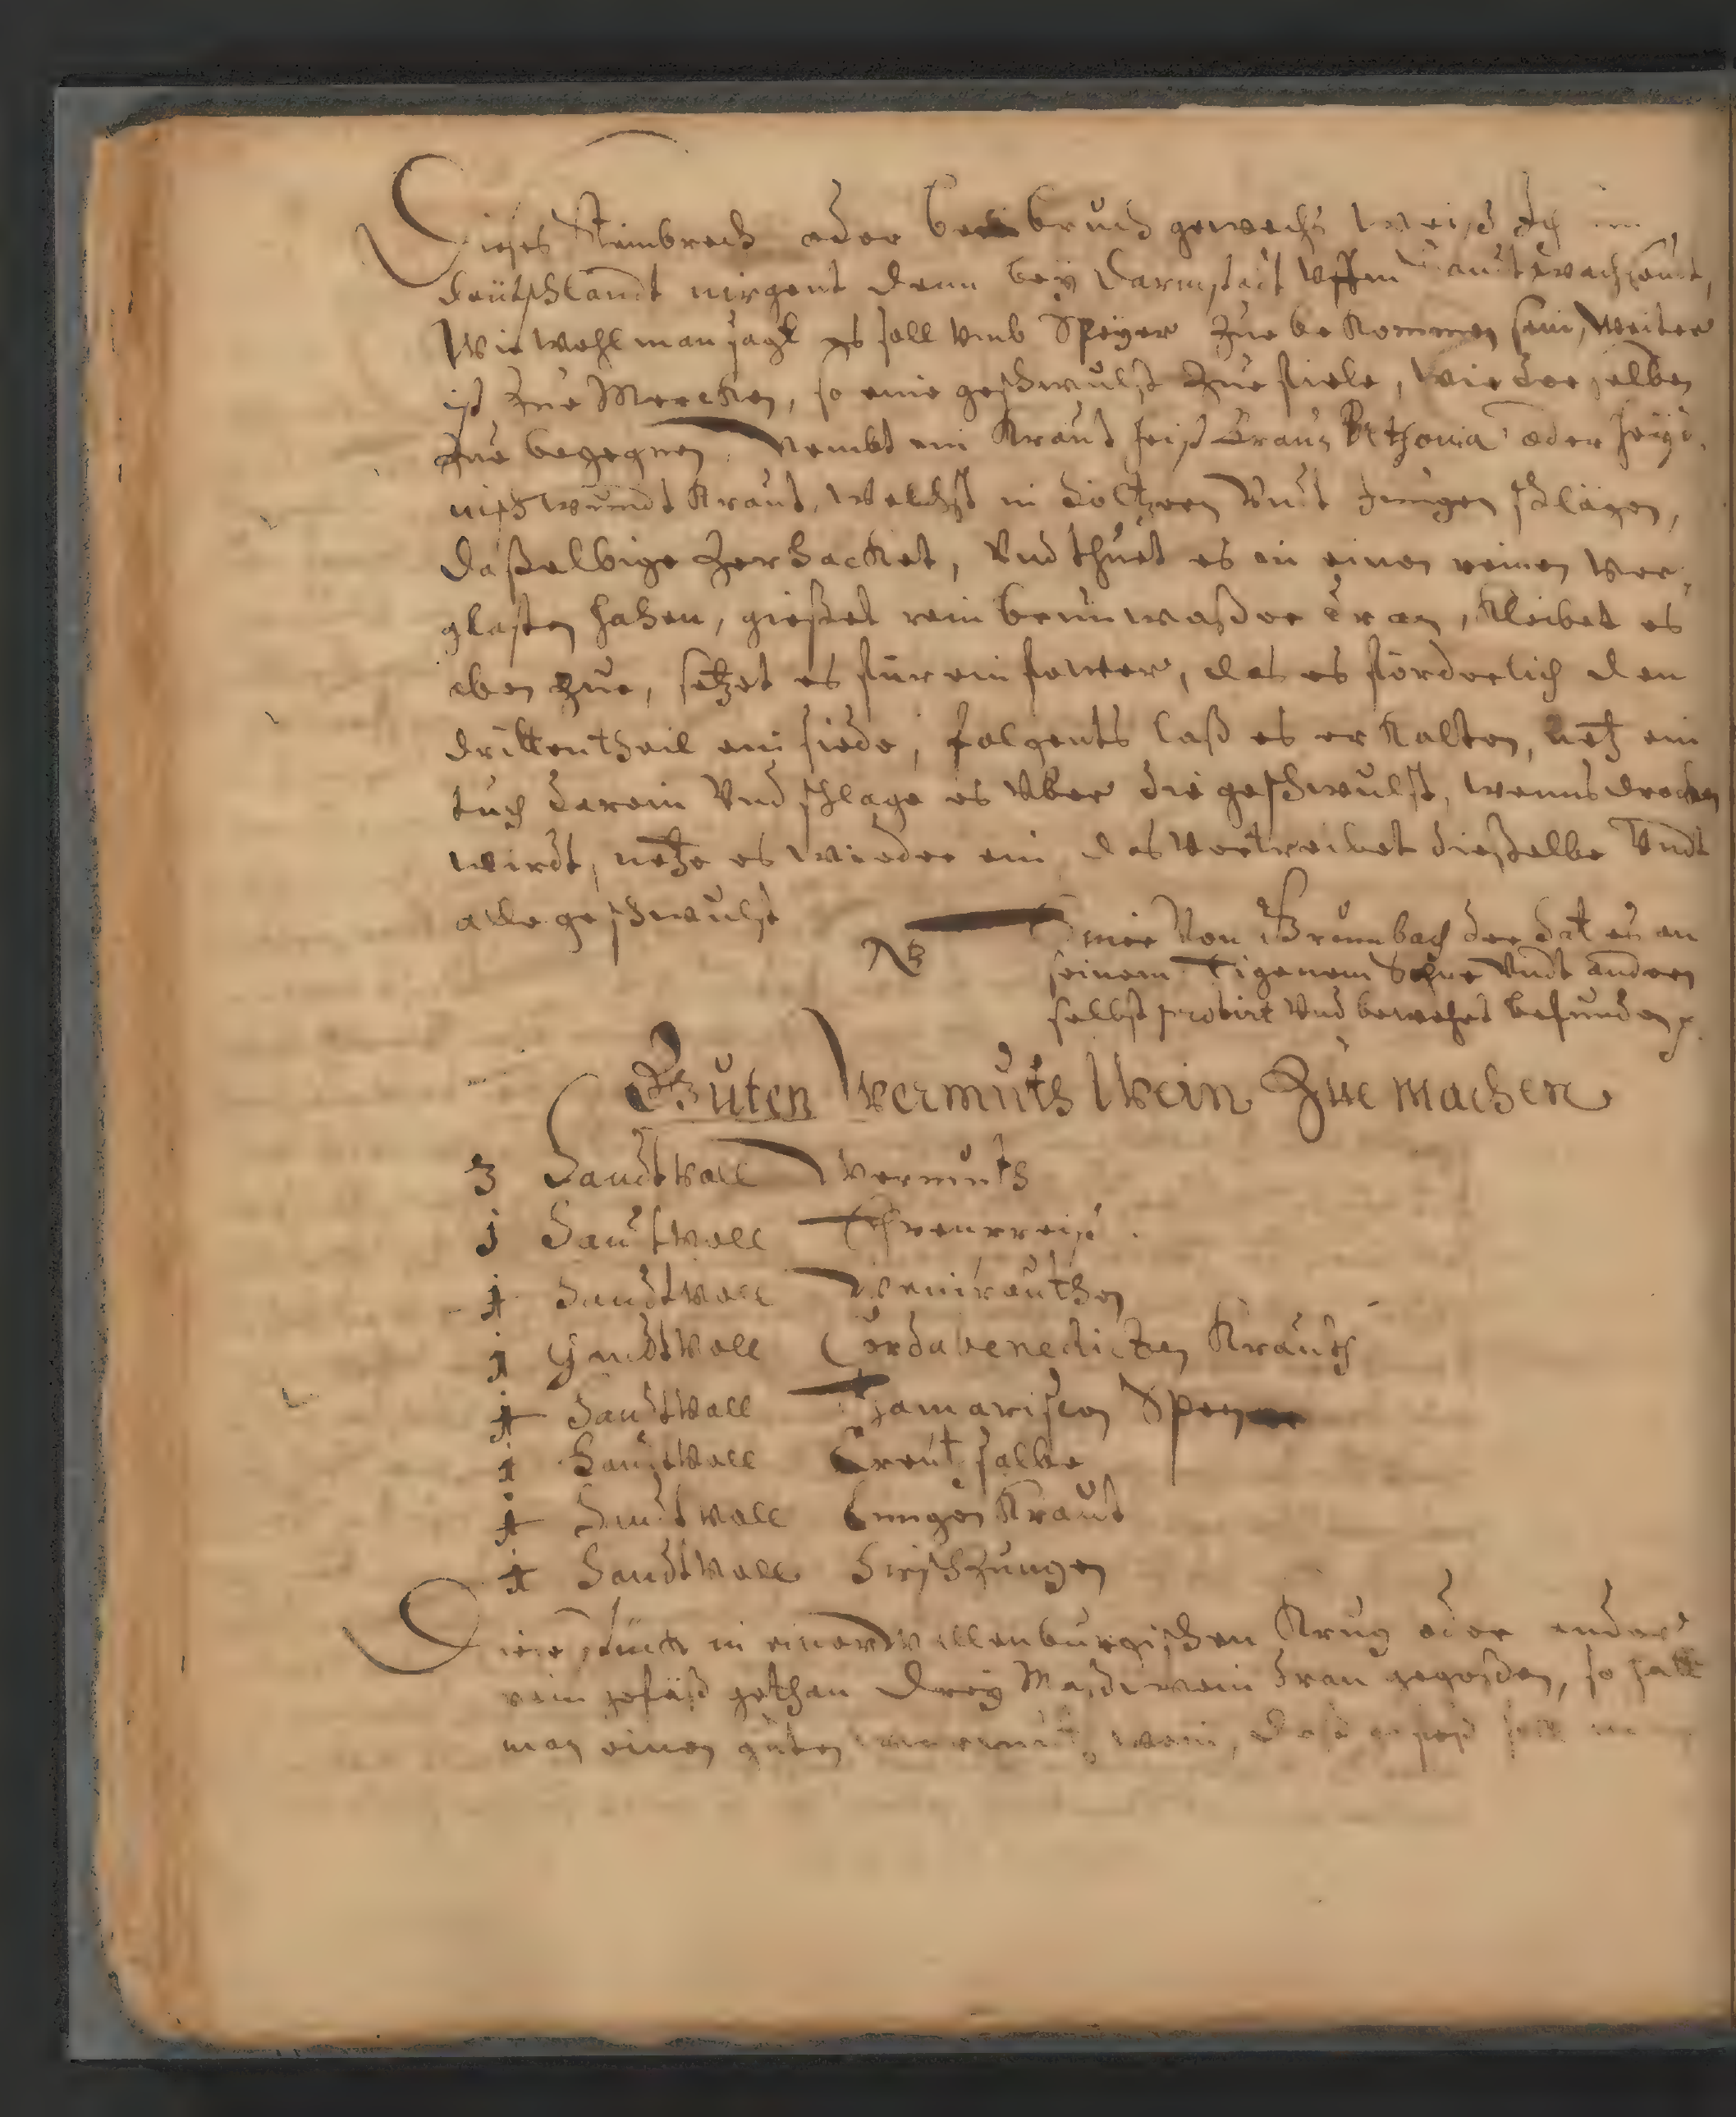 Dieses Steinbrech oder beinbruch gewechs weiß Ich im
Deütschlandt nirgent denn bey Darmstadt vffm
Wiewohl man sagt es soll vmb Speyer zue bekommen sein, weiter
ist zue Mercken, so eine geschwulst zue fiele, wie derselben
zue begegnen, Nembt ein Kraut heist braun Bethonia oder heyd-
nisch wundt Kraut, welchst in höltzern vndt jungen schlägen,
Daßelbige zerhacket, vnd thuet es in einen reinen ver-
glasten hafen, gießet rein brunwaßer dran, kleibet es
oben zue, setzet es für ein fewer, das es förderlich den
dritten theil ein siede, folgents laß es erkalten, netz ein
tuch darein vnd schlage es vber die geschwulst, wenns drocken
wirdt, netze es wieder ein das vertreibet dießelbe vndt
alle geschwulst
NB von Brumbach der hat es an
seinem Eigenem vndt andern
selbst probirt vnd bewehrt befunden
Guten Wermuth Wein Zue machen
3 Handtvoll Wermuth
j Handtvoll Ehrenpreiß
j Handtvoll Weinrauthen
j Handtvoll Cordabenedicten Krauth
j Handtvoll Thamariscen
j Handtvoll Creutz salbe
j Handtvoll Lungen Kraut
j Handtvoll Hirschzungen
Diese stück in einen Krug oder ander
rein gefäß gethan Drey Maß wein dran gegoßen, so hatt
man einen guten wein,